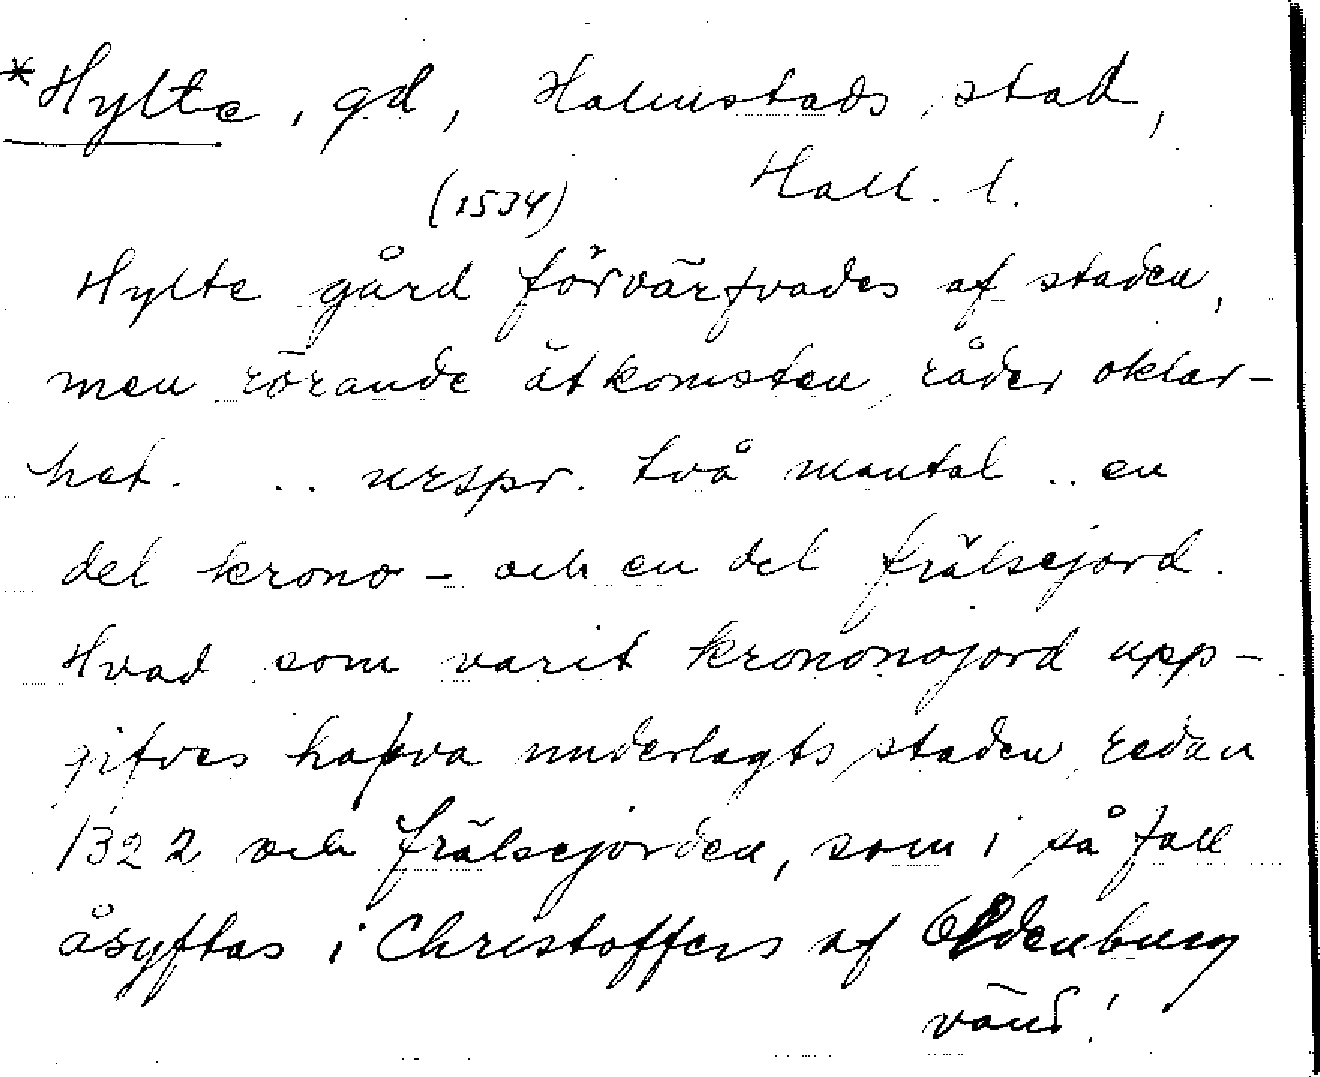 *Hylte, gd, Halmstads stad,
Hall. l.
(1534)
Hylte gård förvärfvades af staden,
men rörande åtkomsten råder oklar-
het. .. urspr. två mantal .. en
del krono- och en del frälsejord.
Hvad som varit krononojord upp-
gifves hafva underlagts staden redan
1322 och frälsejorden, som i så fall
åsyftas i Christoffers af Oldenburg
vänd!